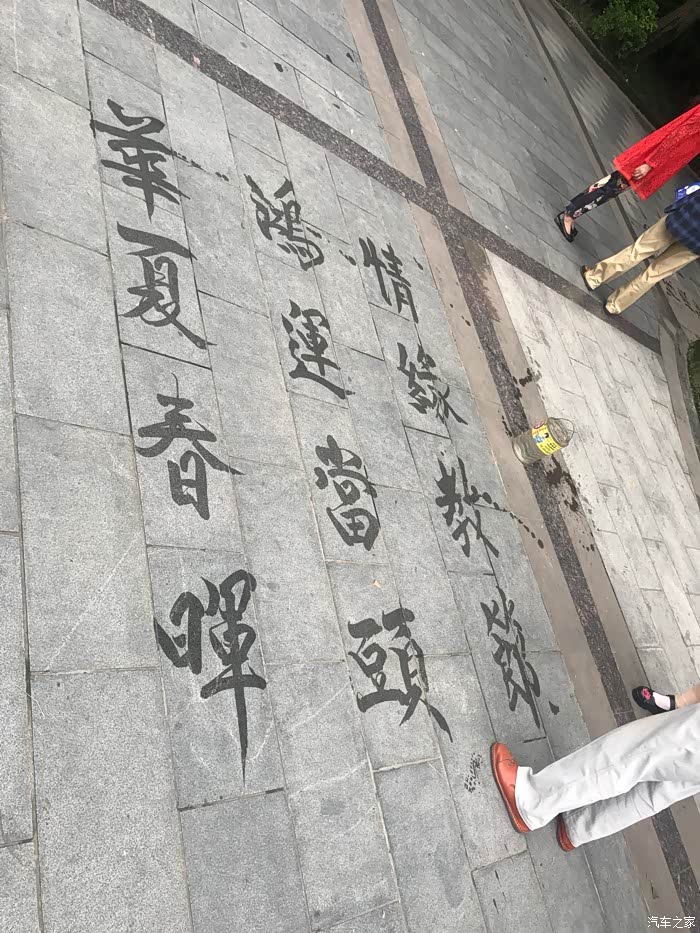 情緣教
鴻運當頭
華夏春暉
汽车之家